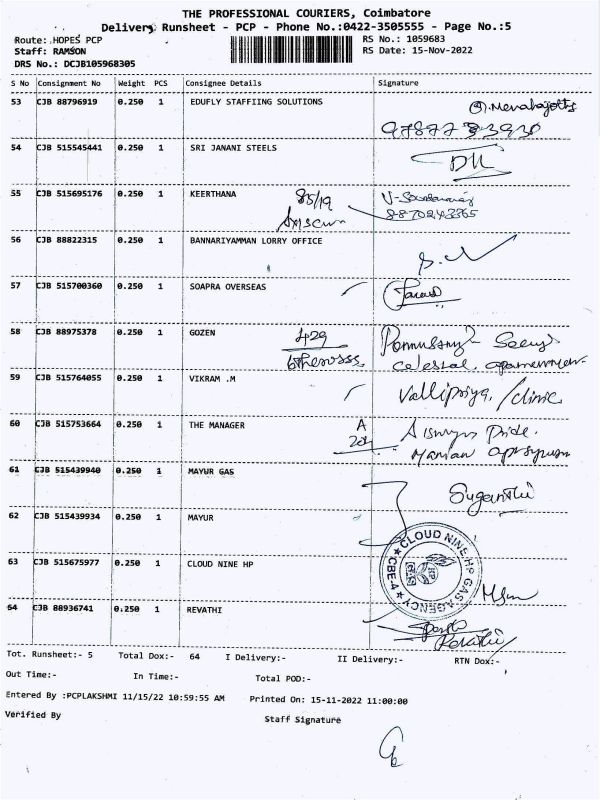 THE PROFESSIONAL COURIERS, Coimbatore
Delivery Runsheet - PCP - Phone No.:0422-3505555 - Page No.:5
Route: HOPES PCP RS No.: 1059683
Staff: RAMSON RS Date: 15-Nov-2022
DRS No.: DCJB105968305
S No Consignment No Weight PCS Consignee Details Signature
53 CJB 88796919 0.250 1 EDUFLY STAFFIING SOLUTIONS
54 CJB 515545441 0.250 1 SRI JANANI STEELS
55 CJB 515695176 0.250 1 KEERTHANA
8870243365
56 CJB 88822315 0.250 1 BANNARIYAMMAN LORRY OFFICE
57 CJB 515700360 0.250 1 SOAPRA OVERSEAS
58 CJB 88975378 0.250 1 GOZEN 429
59 CJB 515764055 0.250 1 VIKRAM .M Vallipriya /clinic
60 CJB 515753664 0.250 1 THE MANAGER A
Pride.
61 CJB 515439940 0.250 1 MAYUR GAS Suganthi
62 CJB 515439934 0.250 1 MAYUR
63 CJB 515675977 0.250 1 CLOUD NINE HP
CLOUD NINE HP GAS AGENCY ★ CBE-4 ★
HP
64 CJB 88936741 0.250 1 REVATHI
Revathi
Tot. Runsheet:- 5 Total Dox:- 64 I Delivery:- II Delivery:- RTN Dox:-
Out Time:- In Time:- Total POD:-
Entered By :PCPLAKSHMI 11/15/22 10:59:55 AM Printed On: 15-11-2022 11:00:00
Verified By Staff Signature